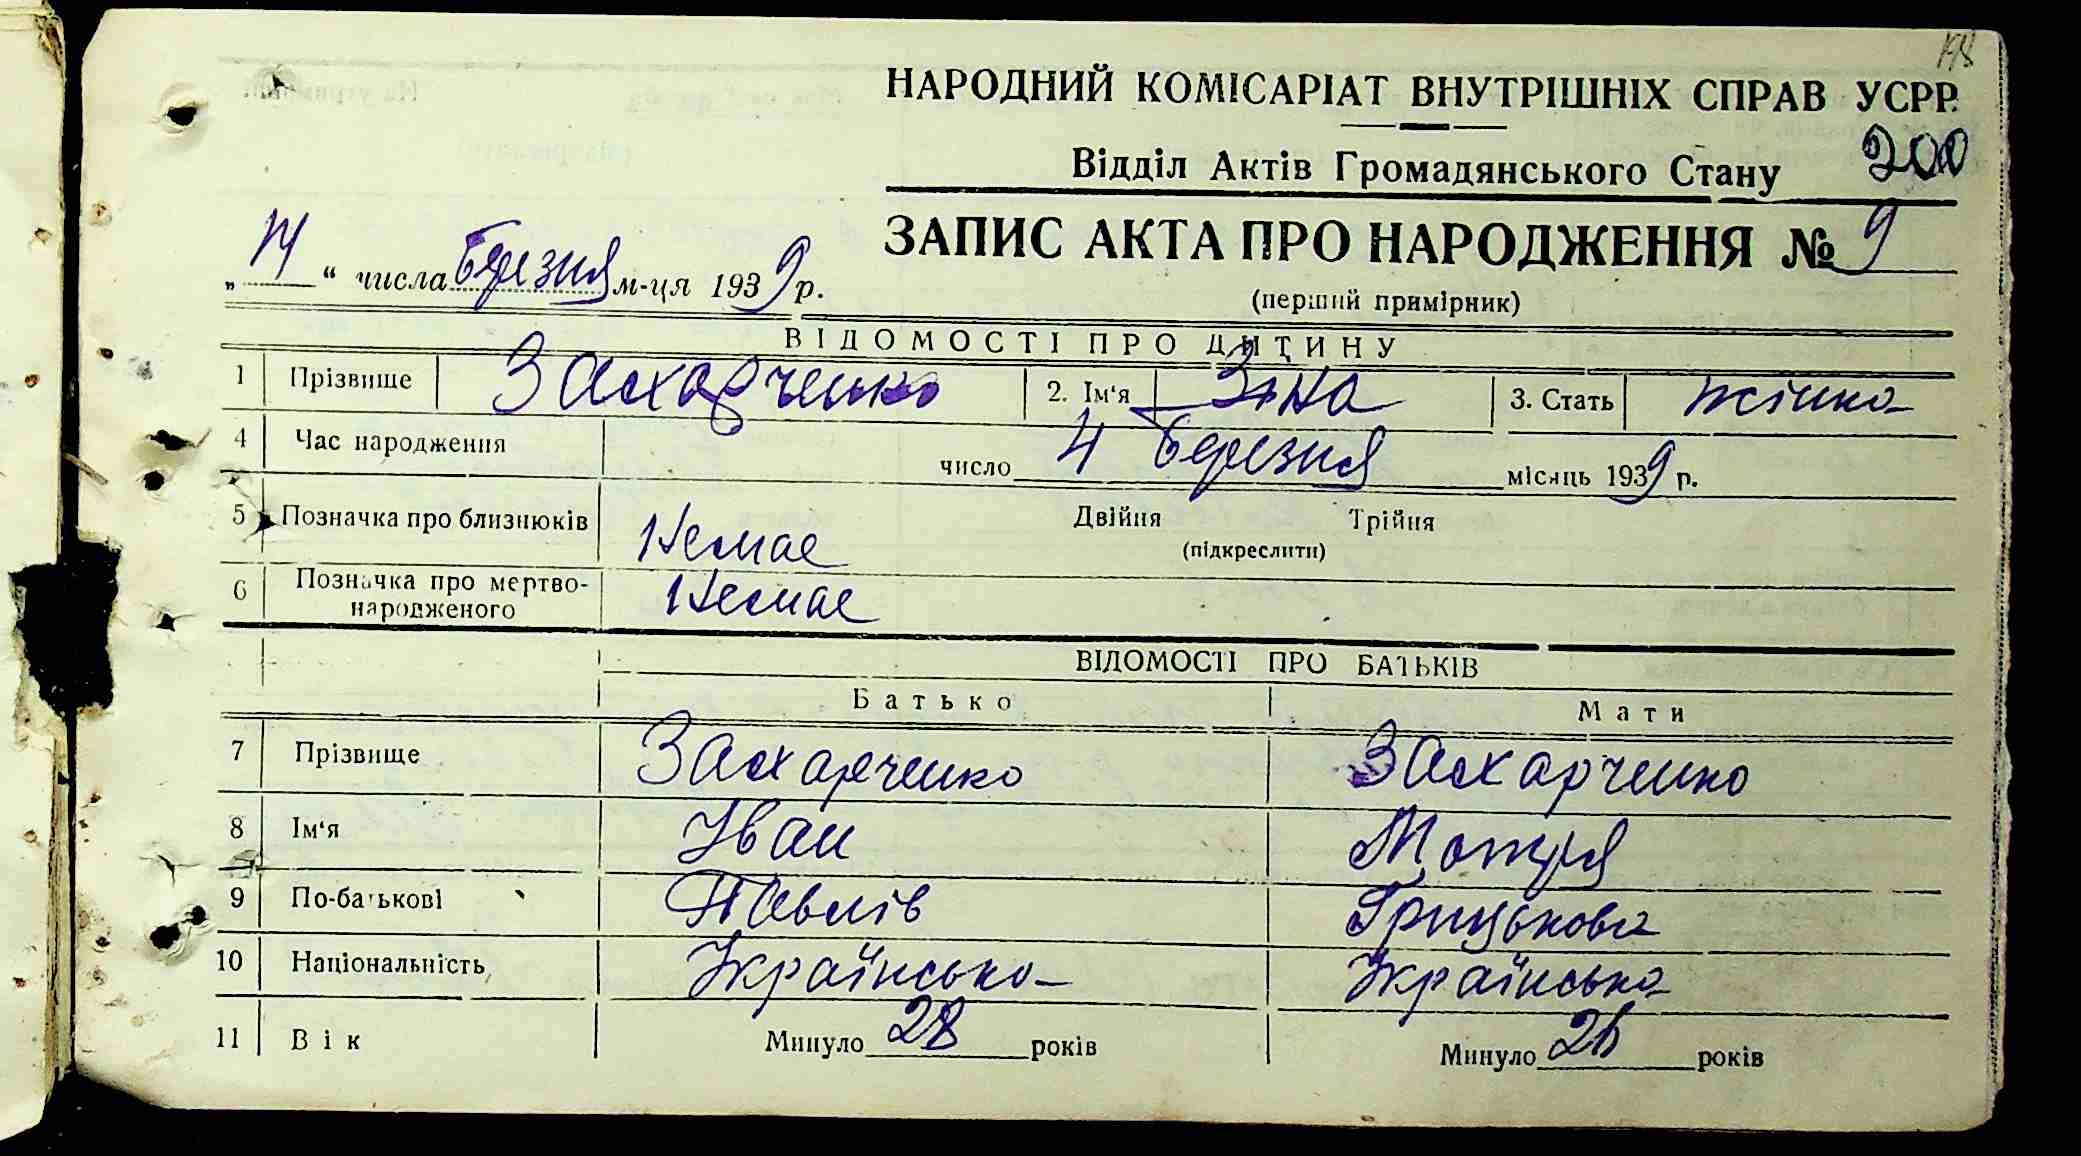 НАРОДНИЙ КОМІСАРІАТ ВНУТРІШНІХ СПРАВ УСРР.
Відділ Актів Громадянського Стану 200
ЗАПИС АКТА ПРО НАРОДЖЕННЯ № 9
„14“ числа березня м-ця 1939 р.
(перший примірник)
ВІДОМОСТІ ПРО ДИТИНУ
1 Прізвище Захарченко 2. Ім'я Зіна 3. Стать жіноча
4 Час народження число 4 березня місяць 1939 р.
5 Позначка про близнюків Немає Двійня Трійня
(підкреслити)
6 Позначка про мертво-
народженого Немає
ВІДОМОСТІ ПРО БАТЬКІВ
Батько Мати
7 Прізвище Захарченко Захарченко
8 Ім'я Іван Мотря
9 По-батькові Павлів Грицькова
10 Національність Українська Українська
11 Вік Минуло 28 років Минуло 26 років